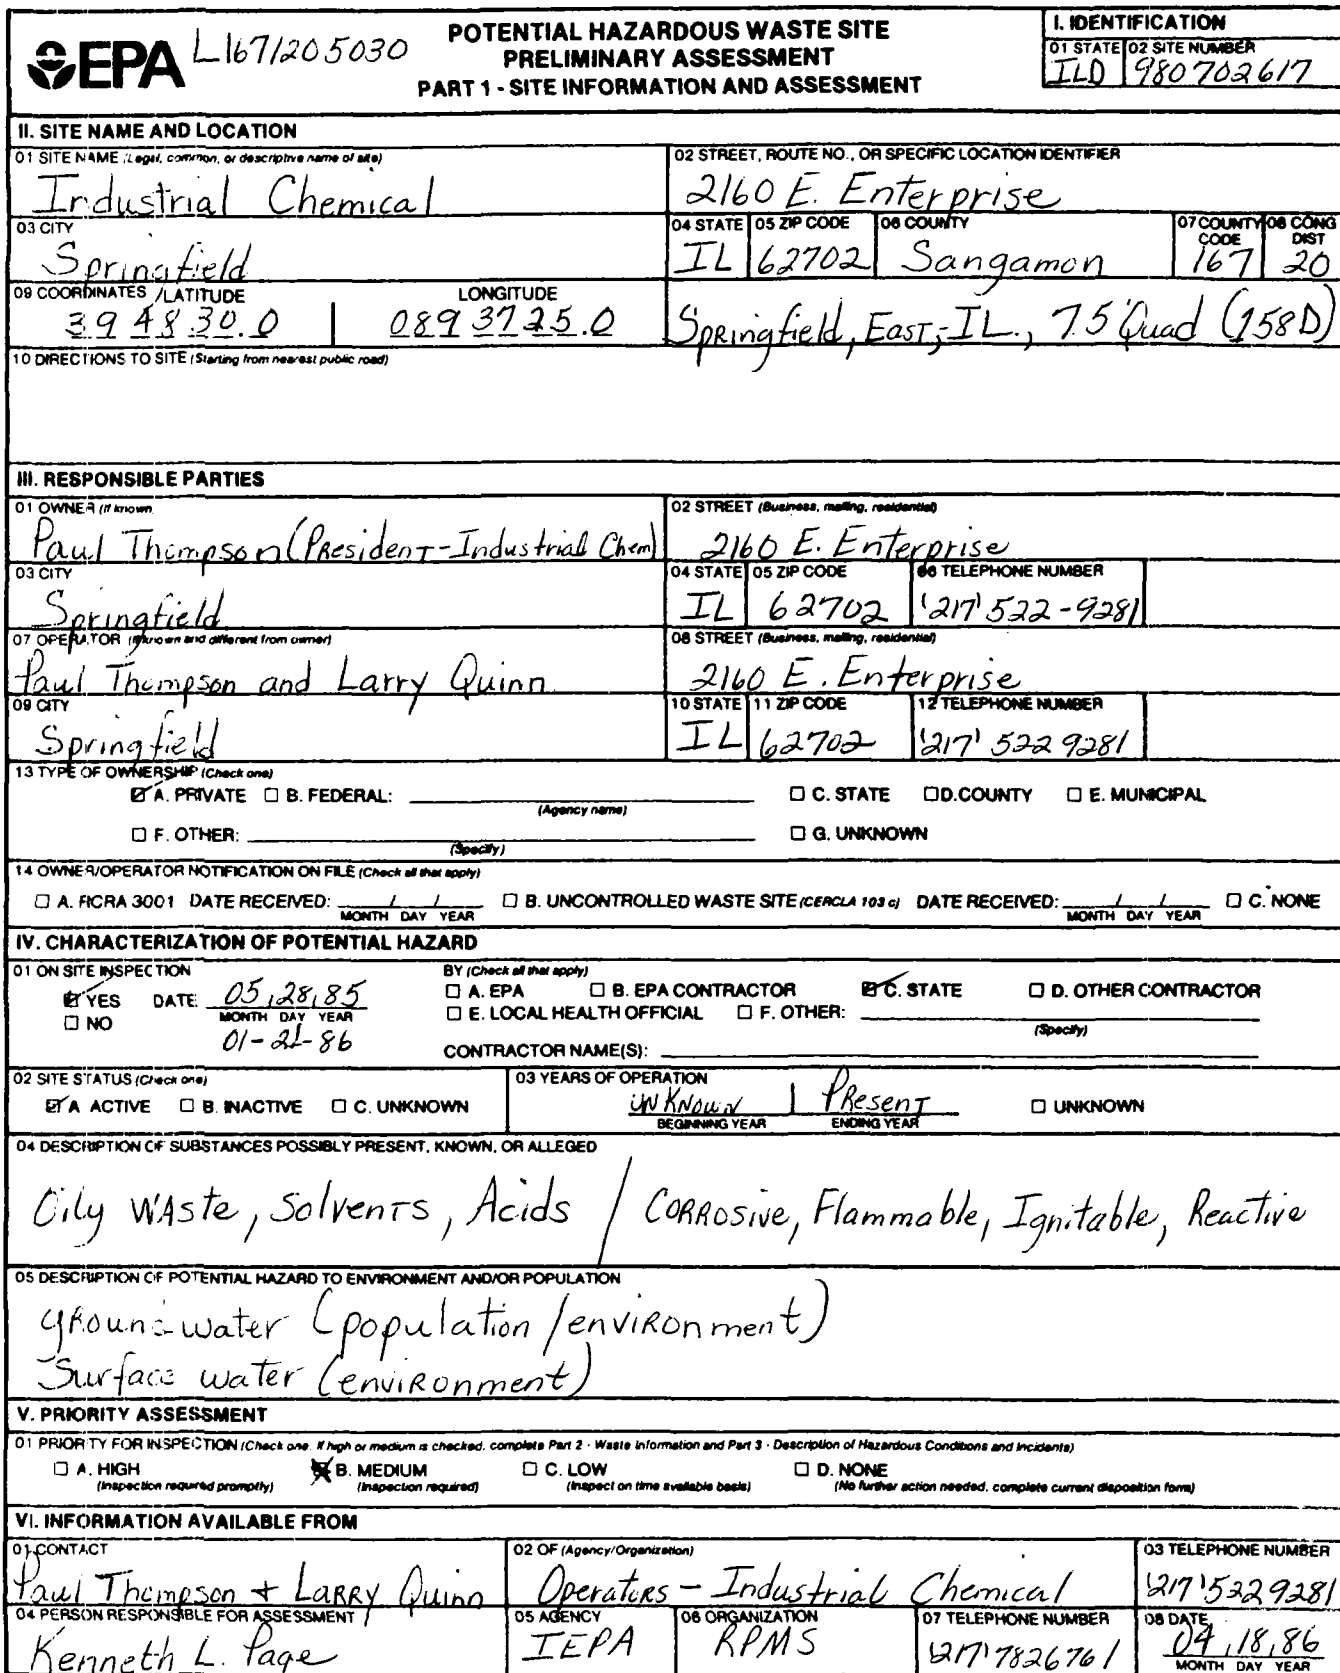 EPA L1671205030
POTENTIAL HAZARDOUS WASTE SITE
PRELIMINARY ASSESSMENT
PART 1 - SITE INFORMATION AND ASSESSMENT
I. IDENTIFICATION
01 STATE 02 SITE NUMBER
ILD 980702617
II. SITE NAME AND LOCATION
01 SITE NAME (Legal, common, or descriptive name of site)
Industrial Chemical
02 STREET, ROUTE NO., OR SPECIFIC LOCATION IDENTIFIER
2160 E. Enterprise
03 CITY
Springfield
04 STATE 05 ZIP CODE 06 COUNTY 07 COUNTY CODE 08 CONG DIST
IL 62702 Sangamon 167 20
09 COORDINATES LATITUDE LONGITUDE
39 48 30.0 089 37 25.0
Springfield, East, IL., 7.5 Quad (158D)
10 DIRECTIONS TO SITE (Starting from nearest public road)
III. RESPONSIBLE PARTIES
01 OWNER (If known)
Paul Thompson (President-Industrial Chem)
02 STREET (Business, mailing, residential)
2160 E. Enterprise
03 CITY
Springfield
04 STATE 05 ZIP CODE 06 TELEPHONE NUMBER
IL 62702 (217) 522-9281
07 OPERATOR (If known and different from owner)
Paul Thompson and Larry Quinn
08 STREET (Business, mailing, residential)
2160 E. Enterprise
09 CITY
Springfield
10 STATE 11 ZIP CODE 12 TELEPHONE NUMBER
IL 62702 (217) 522 9281
13 TYPE OF OWNERSHIP (Check one)
☑ A. PRIVATE ☐ B. FEDERAL: (Agency name) ☐ C. STATE ☐ D. COUNTY ☐ E. MUNICIPAL
☐ F. OTHER: (Specify) ☐ G. UNKNOWN
14 OWNER/OPERATOR NOTIFICATION ON FILE (Check all that apply)
☐ A. RCRA 3001 DATE RECEIVED: / / MONTH DAY YEAR ☐ B. UNCONTROLLED WASTE SITE (CERCLA 103 c) DATE RECEIVED: / / MONTH DAY YEAR ☐ C. NONE
IV. CHARACTERIZATION OF POTENTIAL HAZARD
01 ON SITE INSPECTION
☑ YES DATE 05/28/85
☐ NO MONTH DAY YEAR
01-21-86
BY (Check all that apply)
☐ A. EPA ☐ B. EPA CONTRACTOR ☑ C. STATE ☐ D. OTHER CONTRACTOR
☐ E. LOCAL HEALTH OFFICIAL ☐ F. OTHER: (Specify)
CONTRACTOR NAME(S):
02 SITE STATUS (Check one)
☑ A ACTIVE ☐ B. INACTIVE ☐ C. UNKNOWN
03 YEARS OF OPERATION
UNKNOWN | Present ☐ UNKNOWN
BEGINNING YEAR ENDING YEAR
04 DESCRIPTION OF SUBSTANCES POSSIBLY PRESENT, KNOWN, OR ALLEGED
Oily Waste, Solvents, Acids / Corrosive, Flammable, Ignitable, Reactive
05 DESCRIPTION OF POTENTIAL HAZARD TO ENVIRONMENT AND/OR POPULATION
groundwater (population/environment)
Surface water (environment)
V. PRIORITY ASSESSMENT
01 PRIORITY FOR INSPECTION (Check one. If high or medium is checked, complete Part 2 - Waste Information and Part 3 - Description of Hazardous Conditions and Incidents)
☐ A. HIGH ☒ B. MEDIUM ☐ C. LOW ☐ D. NONE
(Inspection required promptly) (Inspection required) (Inspect on time available basis) (No further action needed, complete current disposition form)
VI. INFORMATION AVAILABLE FROM
01 CONTACT
Paul Thompson + Larry Quinn
02 OF (Agency/Organization)
Operators - Industrial Chemical
03 TELEPHONE NUMBER
(217) 522 9281
04 PERSON RESPONSIBLE FOR ASSESSMENT
Kenneth L. Page
05 AGENCY
IEPA
06 ORGANIZATION
RPMS
07 TELEPHONE NUMBER
(217) 782 6761
08 DATE
04/18/86
MONTH DAY YEAR